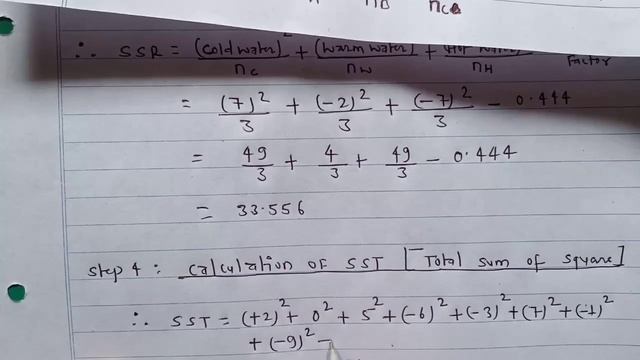 n_B n_C
∴ SSR = (Cold water)² / n_C + (Warm water)² / n_W + / n_H Factor
= (7)²/3 + (-2)²/3 + (-7)²/3 - 0.444
= 49/3 + 4/3 + 49/3 - 0.444
= 33.556
Step 4 : Calculation of SST [Total sum of square]
∴ SST = (+2)² + 0² + 5² + (-6)² + (-3)² + (7)² + (-1)²
+ (-9)² -